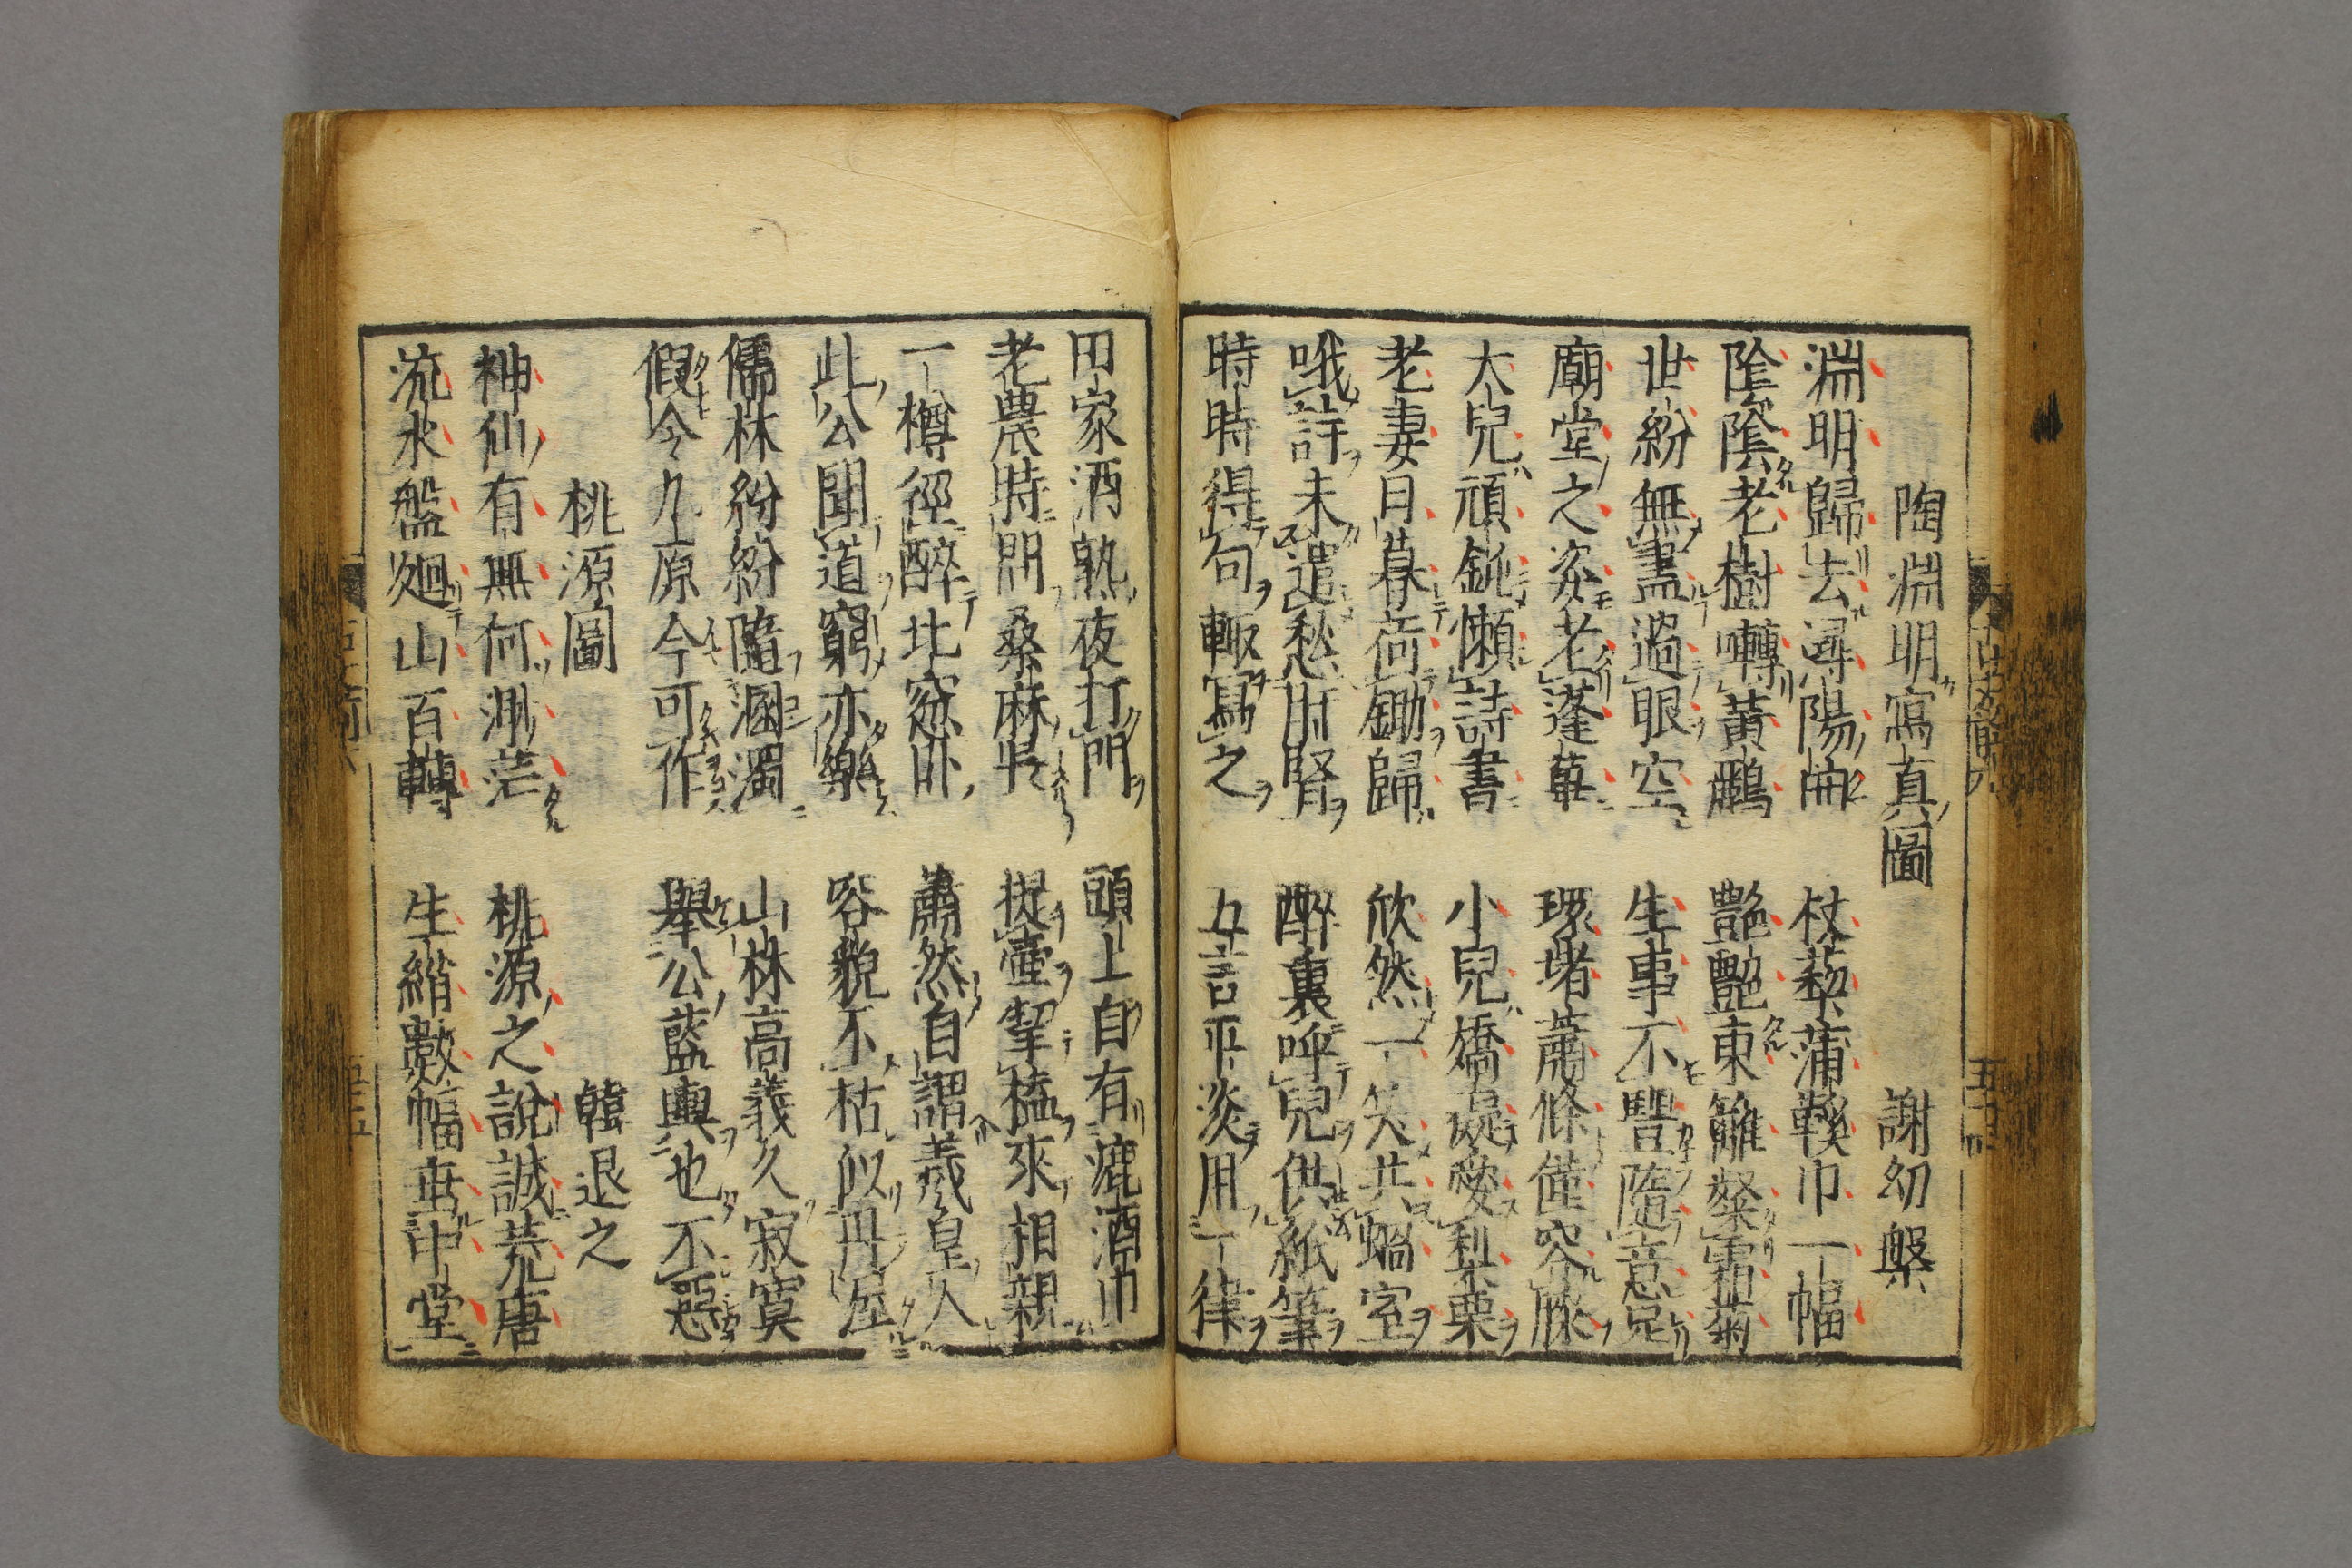 陶淵明寫真圖 謝幼槃
淵明歸去潯陽曲 杖藜蒲鞵巾一幅
陰陰老樹囀黃鸝 艷艷東籬粲霜菊
世紛無盡過眼空 生事不豐隨意足
廟堂之姿老蓬蓽 環堵蕭條僅容膝
大兒頑鈍懶詩書 小兒嬌癡愛梨栗
老妻日暮荷鋤歸 欣然一笑共蝸室
哦詩未遣愁肝腎 醉裏呼兒供紙筆
時時得句輒寫之 五言平淡用一律
田家酒熟夜打門 頭上自有漉酒巾
老農時問桑麻長 提壺挈榼來相親
一樽徑醉北窓臥 蕭然自謂羲皇人
此公聞道窮亦樂 容貌不枯似丹渥
儒林紛紛隨溷濁 山林高義久寂寞
假令九原今可作 舉公藍輿也不惡
桃源圖 韓退之
神仙有無何渺茫 桃源之說誠荒唐
流水盤廻山百轉 生綃數幅垂中堂